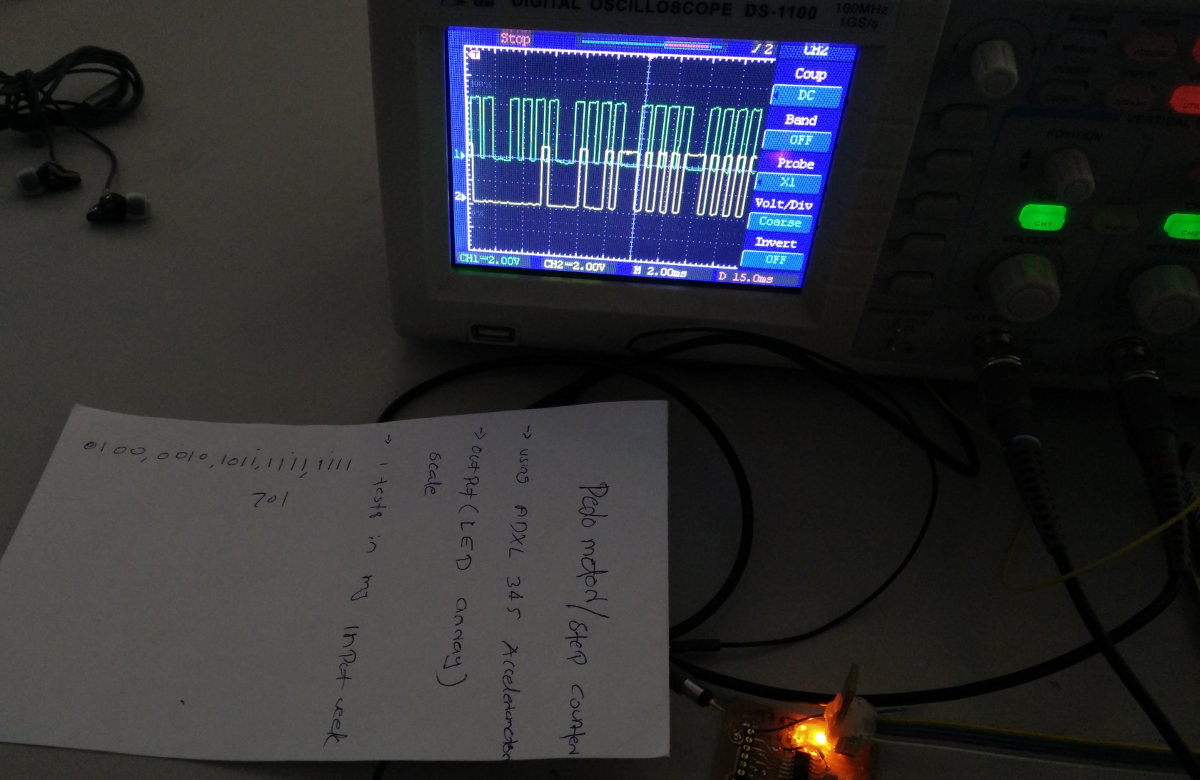 DIGITAL OSCILLOSCOPE DS-1100
100MHz
1GS/s
Stop
/ 2
CH2
Coup
DC
Band
OFF
Probe
X1
Volt/Div
Coarse
Invert
OFF
1
2
CH1 2.00V
CH2 2.00V
M 2.00ms
D 15.0ms
CH1
CH2
Pedometor/Step counter
-> using ADXL 345 Accelerometer
-> output (LED array)
scale
-> 1 tests in my Input week
0100,0010,1011,1111,1111